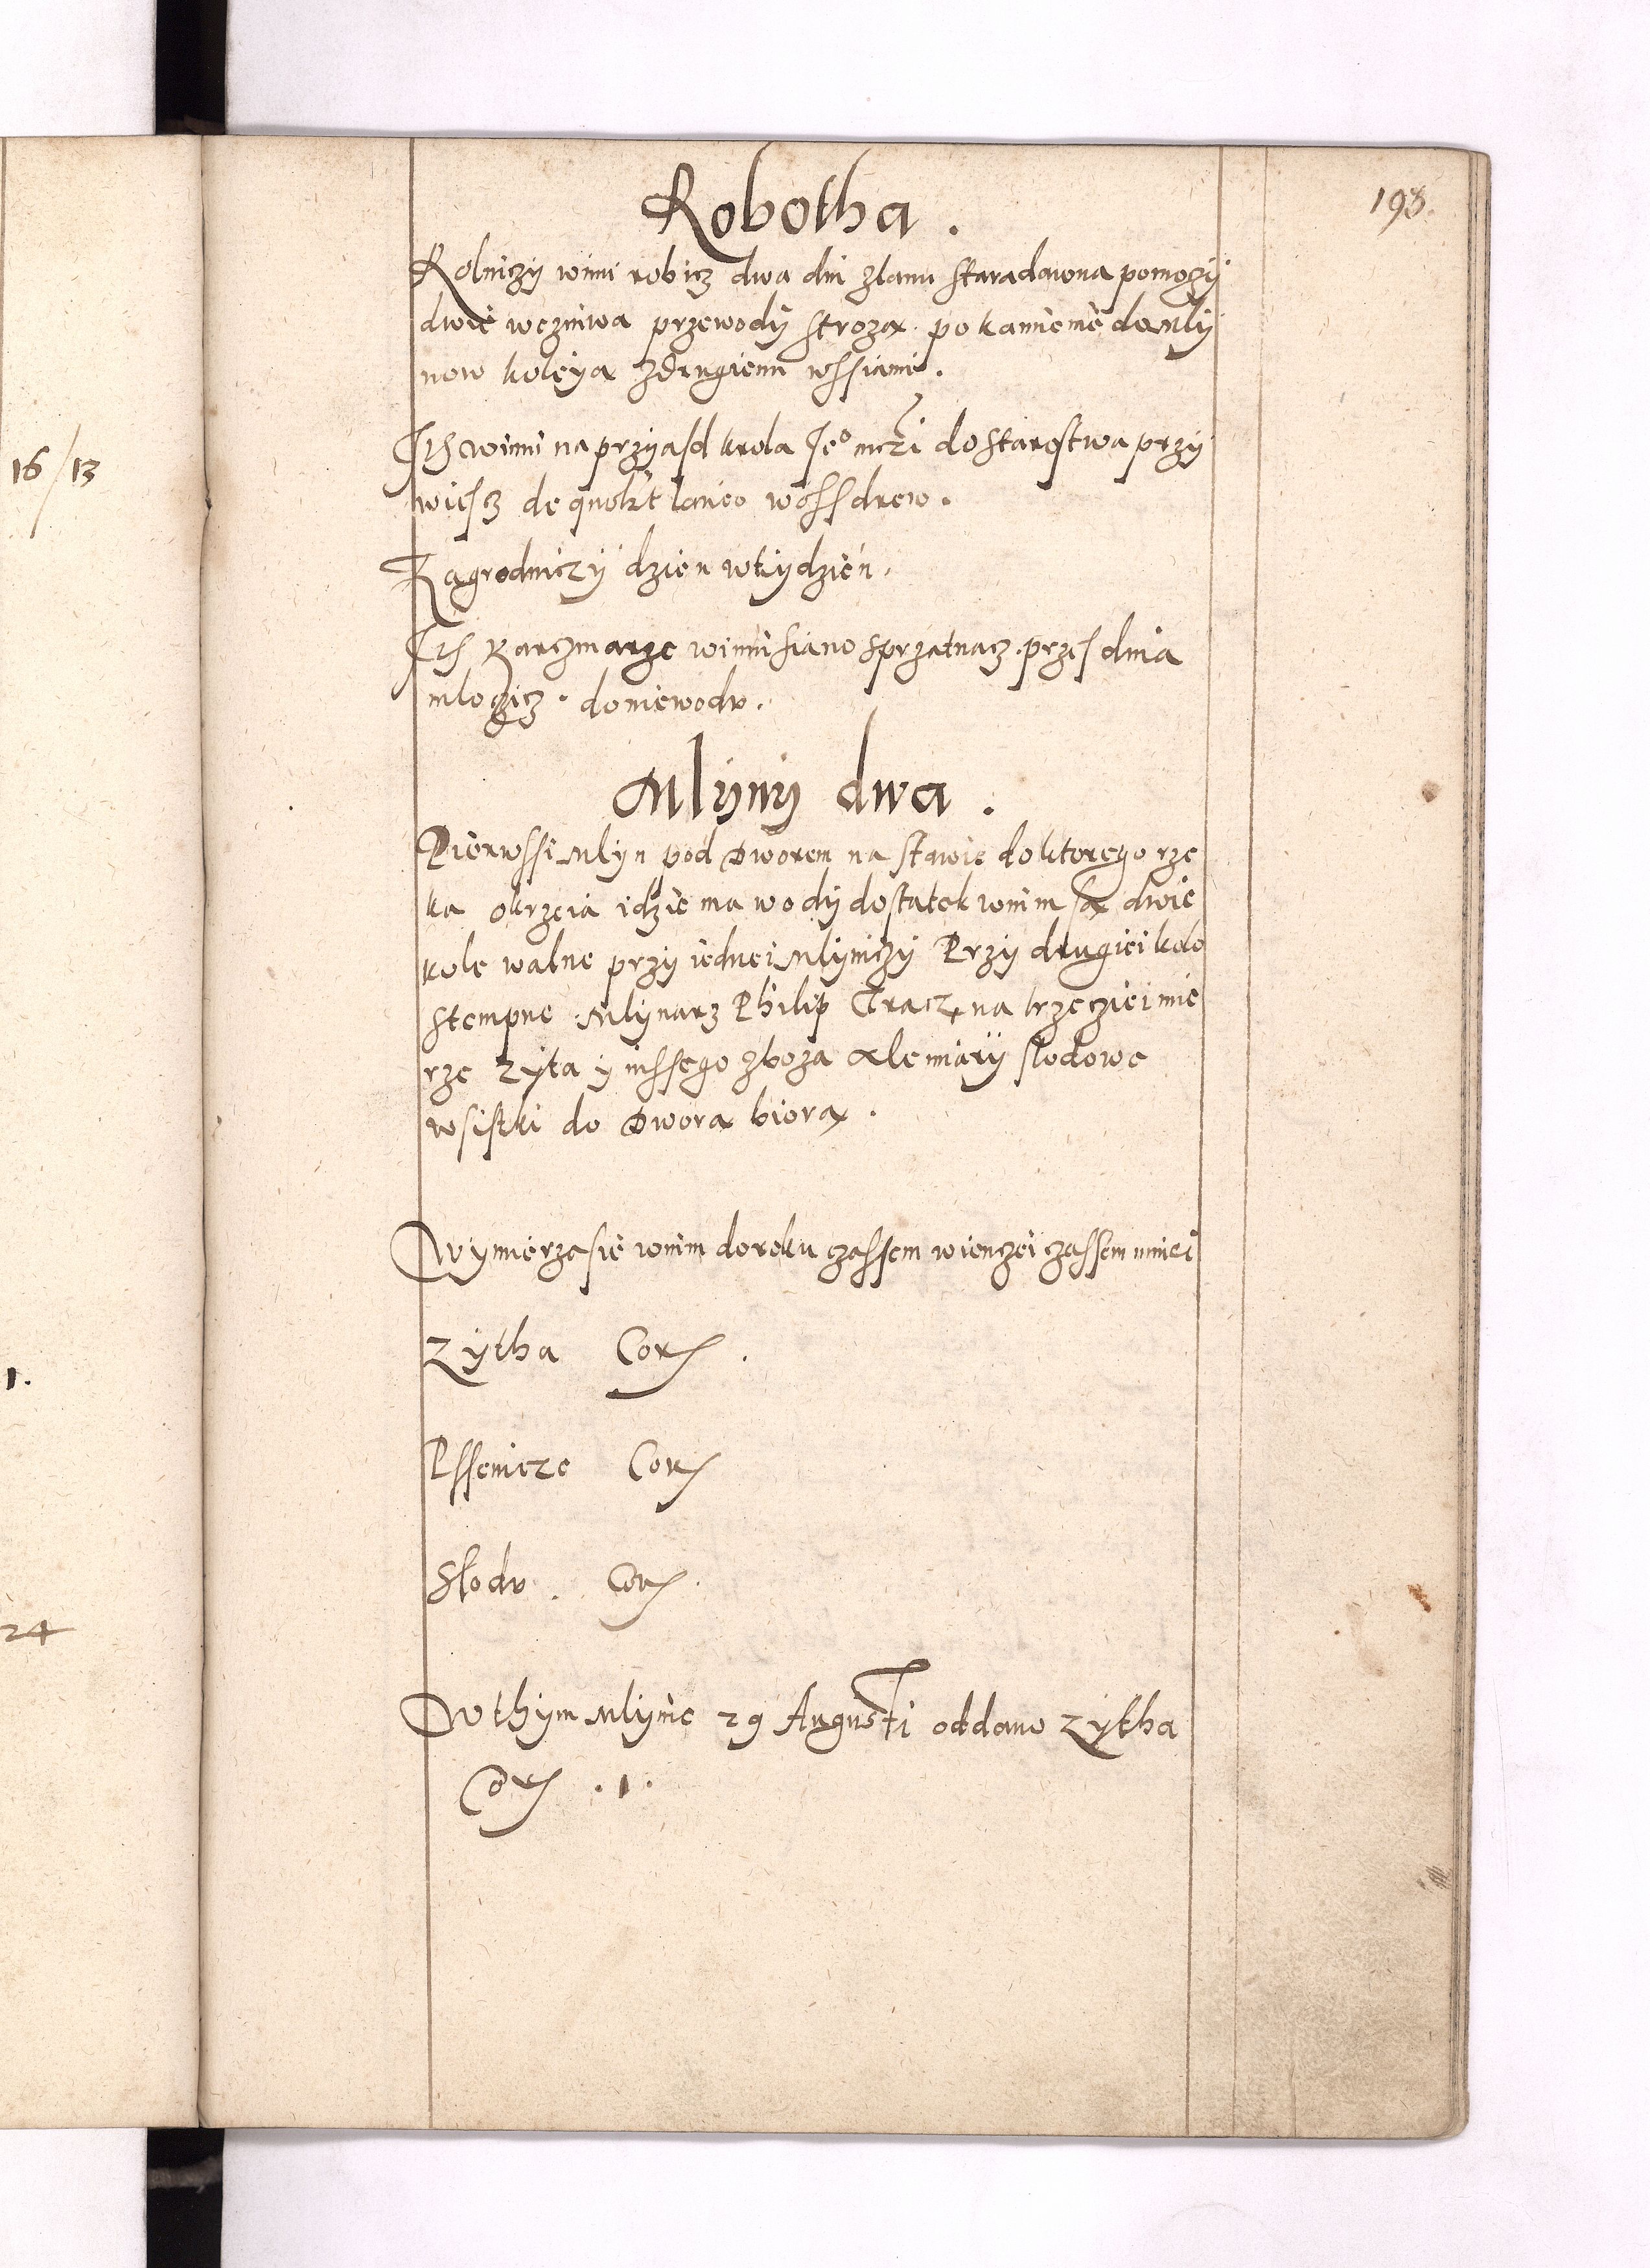 198.
Robotha.
Rolniczÿ winni robicz dwa dni zlanu staradawna pomoczÿ
dwie wezniwa przewodÿ strozą po kamienie do Mlÿ
now koleÿa zdrugiemi wssiami.
Ith winni na przÿasd krola Je° mczi do starostwa przÿ
wiescz de quolzt laneo woss drew.
Zagrodniczÿ dzien wtÿdzien.
Ith Karczmarze winni siano sprzątnacz. przes dnia
mloczicz. do niewodu.
Mlÿnÿ dwa.
Pierwssi Mlÿn pod Dworem na stawie do ktorego rze
ka okrzeia idzie ma wodÿ dostatek wnim są dwie
kole walne przÿ iednei Mlÿniczÿ Przÿ drugiei kolo
stempne Mlÿnarz Philip Tracz na trzecziei mie
rze zÿta ÿ inssego zboza ale miarÿ slodowe
wsistki do Dwora biorą.
Wÿmierza sie wnim do roku czassem wienczei czassem mniei
Zÿtha Cor.
Psseniczе Cor
Slodu. Cor.
Wthÿm Mlÿnie 29 Augusti oddano Zÿtha
Cor .1.
16/13
1.
24